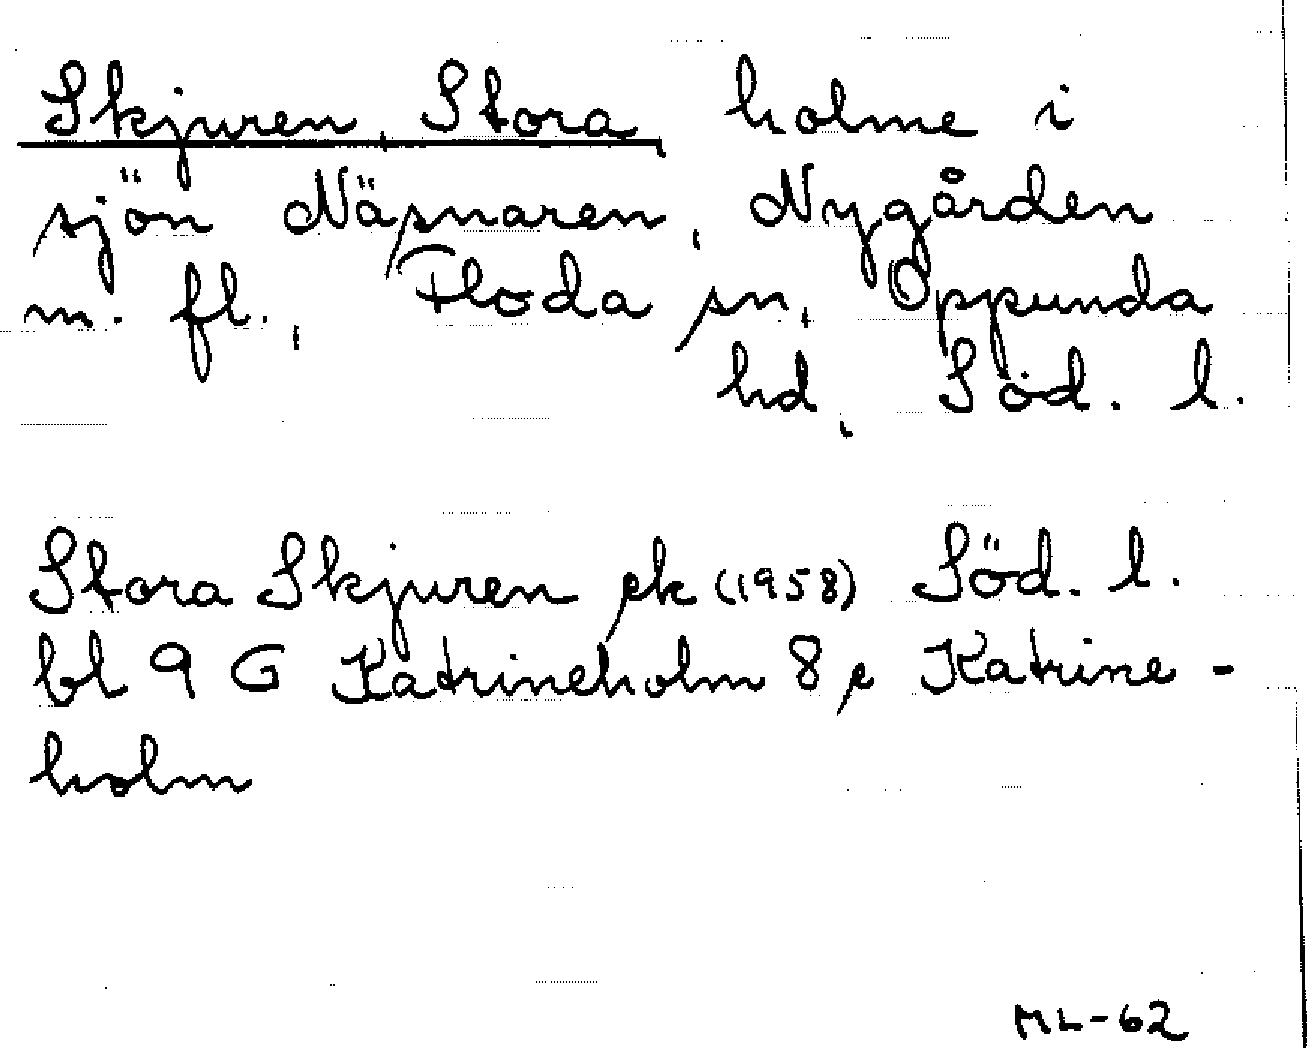 Skjuren, Stora, holme i
sjön Näsnaren, Nygården
m. fl., Floda sn, Oppunda
hd, Söd. l.
Stora Skjuren ek (1958) Söd. l.
bl 9 G Katrineholm 8 e Katrine-
holm
ML-62